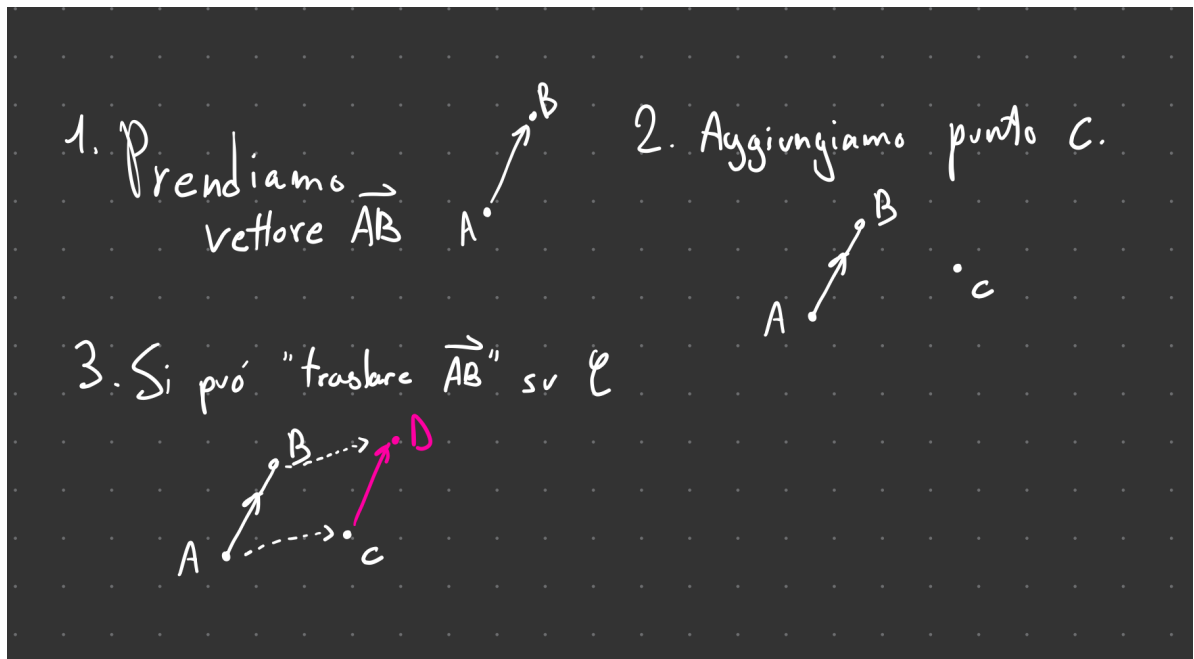 1. Prendiamo
vettore AB
B
A
2. Aggiungiamo punto C.
B
A
C
3. Si puó "traslare AB" su C
B
D
A
C